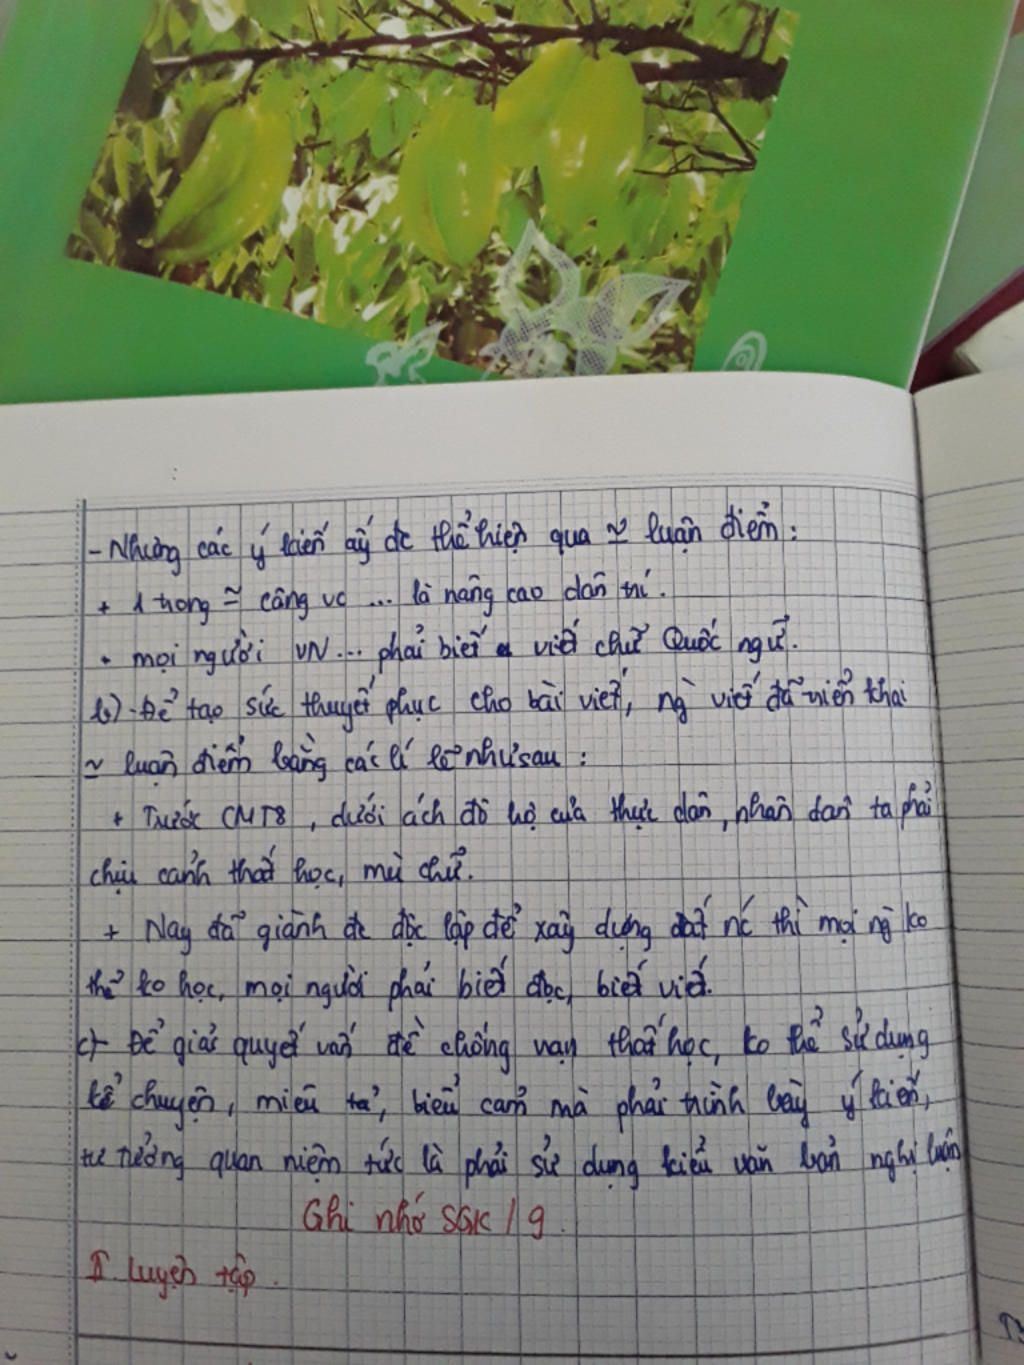 - Nhưng các ý kiến ấy đc thể hiện qua ~ luận điểm :
+ 1 trong ~ công vc ... là nâng cao dân trí.
+ mọi người VN... phải biết viết chữ Quốc ngữ.
b) - Để tạo sức thuyết phục cho bài viết, ng` viết đã triển khai
~ luận điểm bằng các lí lẽ như sau :
+ Trước CMT8, dưới ách đô hộ của thực dân, nhân dân ta phải
chịu cảnh thất học, mù chữ.
+ Nay đã giành đc độc lập để xây dựng đất nc thì mọi ng` ko
thể ko học, mọi người phải biết đọc, biết viết.
c) - Để giải quyết vấn đề chống nạn thất học, ko thể sử dụng
kể chuyện, miêu tả, biểu cảm mà phải trình bày ý kiến,
tư tưởng quan niệm tức là phải sử dụng kiểu văn bản nghị luận
Ghi nhớ SGK / 9.
II. Luyện tập.